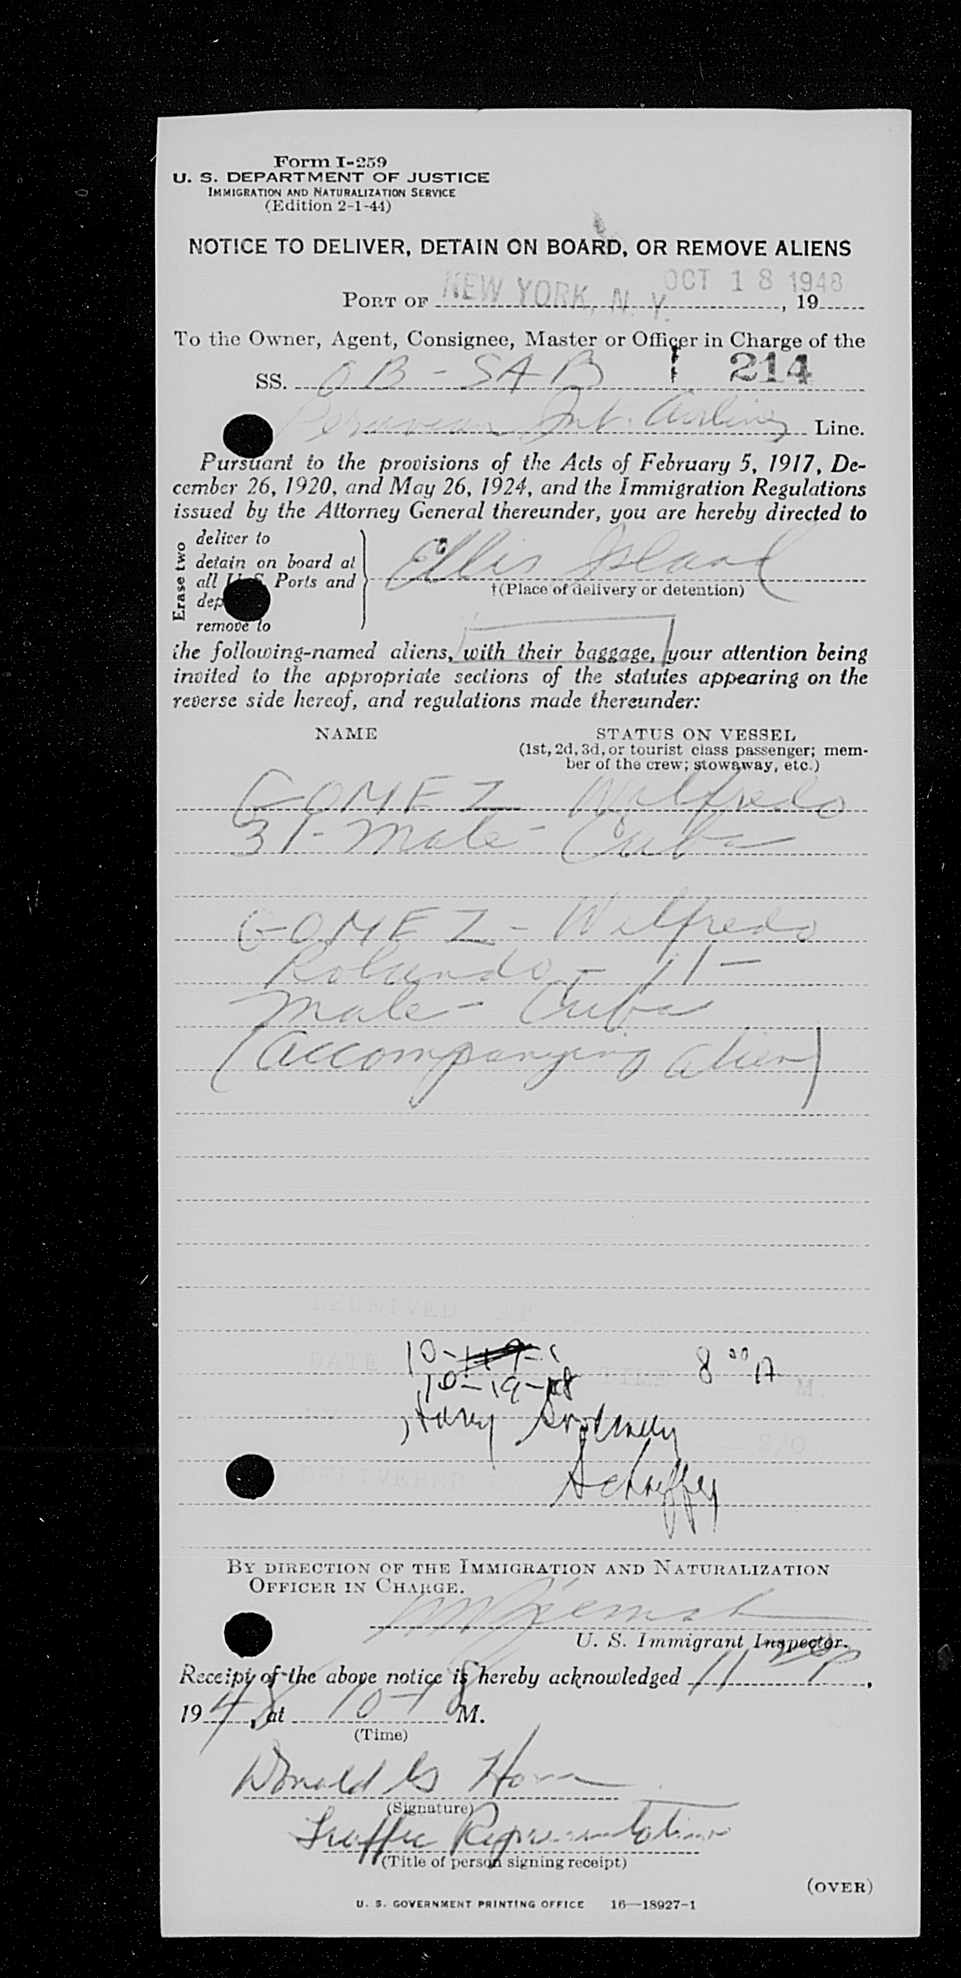 Form I-259
U. S. DEPARTMENT OF JUSTICE
IMMIGRATION AND NATURALIZATION SERVICE
(Edition 2-1-44)
NOTICE TO DELIVER, DETAIN ON BOARD, OR REMOVE ALIENS
PORT OF NEW YORK, N. Y. OCT 18 1948, 19
To the Owner, Agent, Consignee, Master or Officer in Charge of the
SS. OB-SAB 214
Peruvian Int. Airlines Line.
Pursuant to the provisions of the Acts of February 5, 1917, De-
cember 26, 1920, and May 26, 1924, and the Immigration Regulations
issued by the Attorney General thereunder, you are hereby directed to
Erase two
deliver to
detain on board at
all U. S. Ports and
dep
remove to
Ellis Island
†(Place of delivery or detention)
the following-named aliens, with their baggage, your attention being
invited to the appropriate sections of the statutes appearing on the
reverse side hereof, and regulations made thereunder:
NAME STATUS ON VESSEL
(1st, 2d, 3d, or tourist class passenger; mem-
ber of the crew; stowaway, etc.)
GOMEZ Wilfredo
31 - Male - Cuba
GOMEZ - Wilfredo
Rolando - 11 -
Male - Cuba
(accompanying alien)
RECEIVED AT
DATE TIME M.
DELIVERED
10-
8 30 A
10-19-48
Harry
Schaffer
BY DIRECTION OF THE IMMIGRATION AND NATURALIZATION
OFFICER IN CHARGE.
U. S. Immigrant Inspector.
Receipt of the above notice is hereby acknowledged 11 20 P,
1948, at 10-18 M.
(Time)
Donald G Horn
(Signature)
Traffic Representative
(Title of person signing receipt)
(OVER)
U. S. GOVERNMENT PRINTING OFFICE 16—18927-1